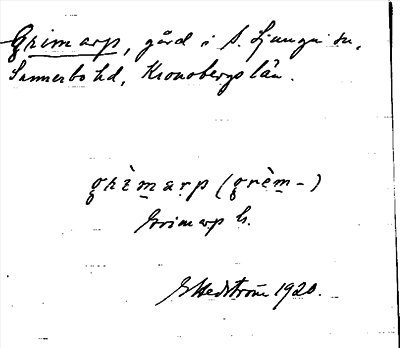 Grimarp, gård i S. Ljunga sn,
Sunnerbo hd, Kronobergs län.
grìmarp (grèm-)
Grimarp h.
G Hedström 1920.